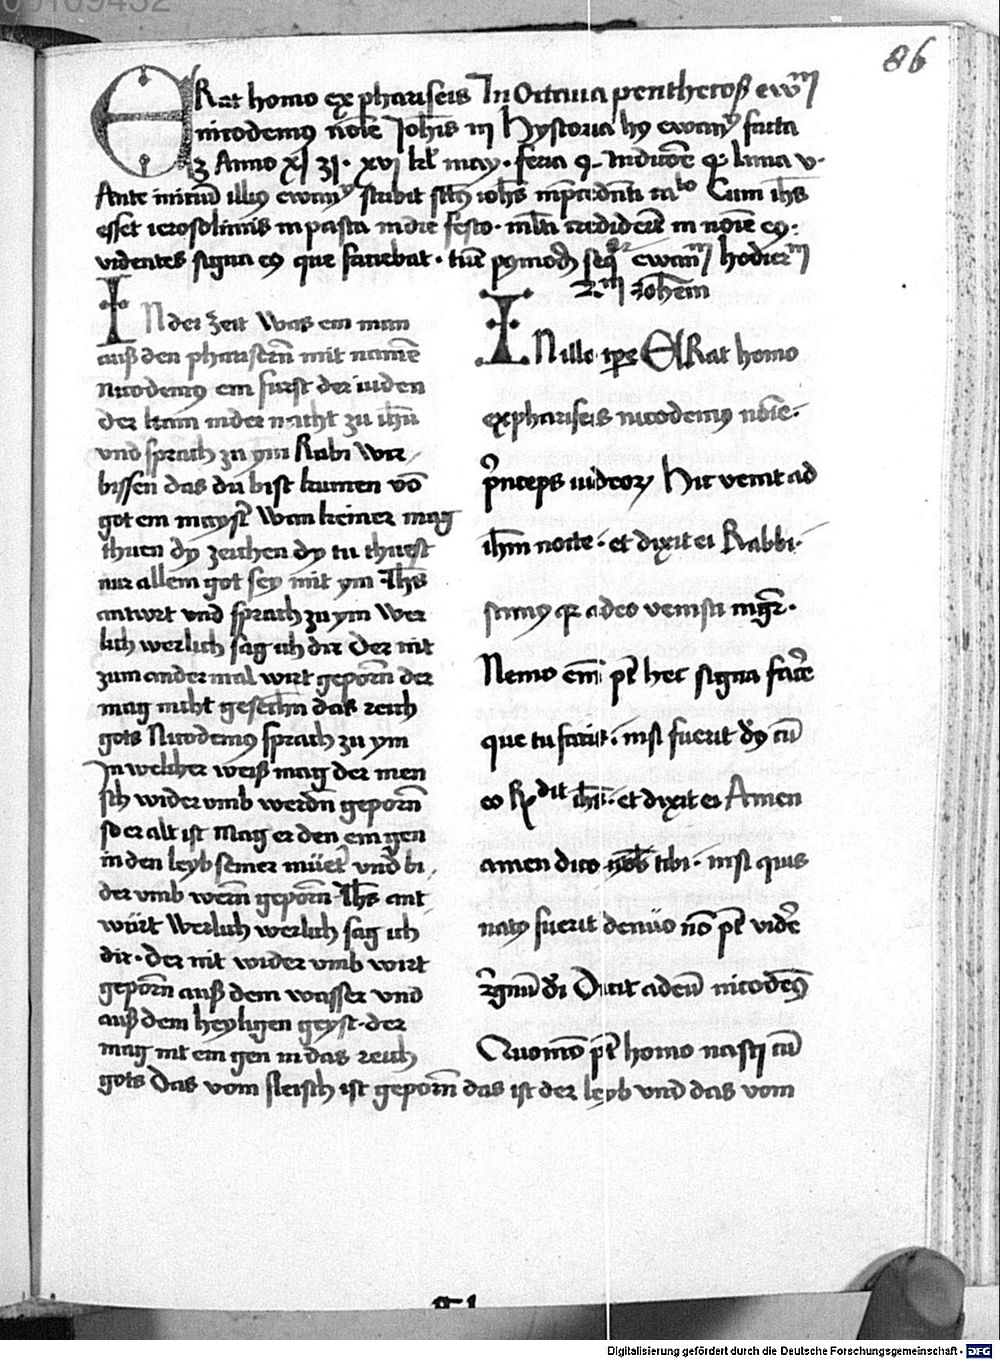 86
ERat homo ex phariseis In Octaua penthecost ewm
nicodemus noīe Johīs iij Hystoria huius ewangii facta
Anno xj 31 · xvj kl may · feria luna v ·
Ante iniciū illius ewangij scribit sctūs iohēs Cum ihs
esset ierosolimis in pasca in die festo · mlti crediderūt in noīe eius :
videntes signa eius que faciebat · tūc seqr ewanm hodiernm
Johēm
IN der zeit Was ein man
auß den pharisern mit namē
Nicodemus ein furst der iuden
der kam inder nacht zu ihū
vnd sprach zu ym Rabi Wir
bissen das du bist kumen vō
got ein mayster Wan keiner mag
thuen dy zeichen dy tu thuest
nur allein got sey mit ym Ihs
antwurt vnd sprach zu ym Wer
lich werlich sag ich dir Der nit
zum ander mal wirt geporn der
mag nicht gesechn das reich
gots Nicodemus sprach zu ym
In welcher weiß mag der men
sch wider vmb werdn geporn
so er alt ist Mag er den ein gen
in den leyb seiner müet vnd bi
der vmb wern geporn Ihs ant
würt Werlich werlich sag ich
dir · der nit wider vmb wirt
geporn auß dem wasser vnd
auß dem heyligen geyst · der
mag nit ein gen in das reich
gots Das vom fleisch ist geporn das ist der leyb vnd das vom
IN illo tpe ERat homo
ex phariseis nicodemus noīe ·
prīnceps iudeorum Hic venit ad
ihm nocte · et dixit ei Rabbi ·
scimus qr a deo venisti mgr ·
Nemo eīm pt hec signa facere
que tu facis · nisi fuerit ds cū
eo Rdit ihs · et dixit ei Amen
amen dico tibi · nisi quis
natus fuerit denüo nō pt videre
regnū di Dicit ad eū nicodēus
Quomō pt homo nasci cū
Digitalisierung gefördert durch die Deutsche Forschungsgemeinschaft - DFG